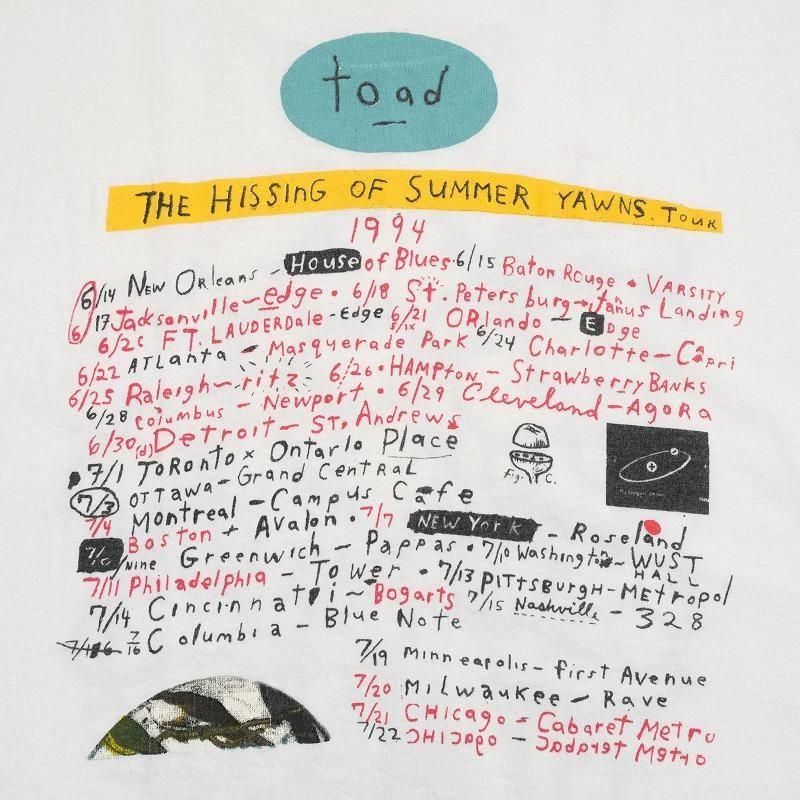 toad
THE HISSING OF SUMMER YAWNS. TOUR
1994
6/14 NEW ORLeans - House of Blues · 6/15 Baton Rouge • VARSITY
6/17 Jacksonville - edge • 6/18 St. Petersburg - Janus Landing
6/20 FT. LAUDERDALE - Edge 6/21 ORlando - EDge
6/22 ATLanta - Masquerade Park 6/24 Charlotte - Capri
6/25 Raleigh - ritz 6/26 • HAMPton - Strawberry BANKS
6/28 Columbus - Newport • 6/29 Cleveland - AgORa
6/30 Detroit - ST. Andrews
7/1 ToRonto x Ontario Place
7/3 OTTawa - Grand CenTRaL
7/4 Montreal - Campus Cafe
Boston + Avalon • 7/7 NEW YORK - Roseland
/Nine Greenwich - Pappas • 7/10 Washington - WUST HALL
7/11 Philadelphia - Tower • 7/13 PITTSBURGH - METROpol
7/14 Cincinnati - Bogarts 7/15 Nashville - 328
7/16 Columbia - Blue Note
7/19 minneapolis - first Avenue
7/20 MiLwauKee - Rave
7/21 CHicago = Cabaret Metro
7/22
Fig. C.